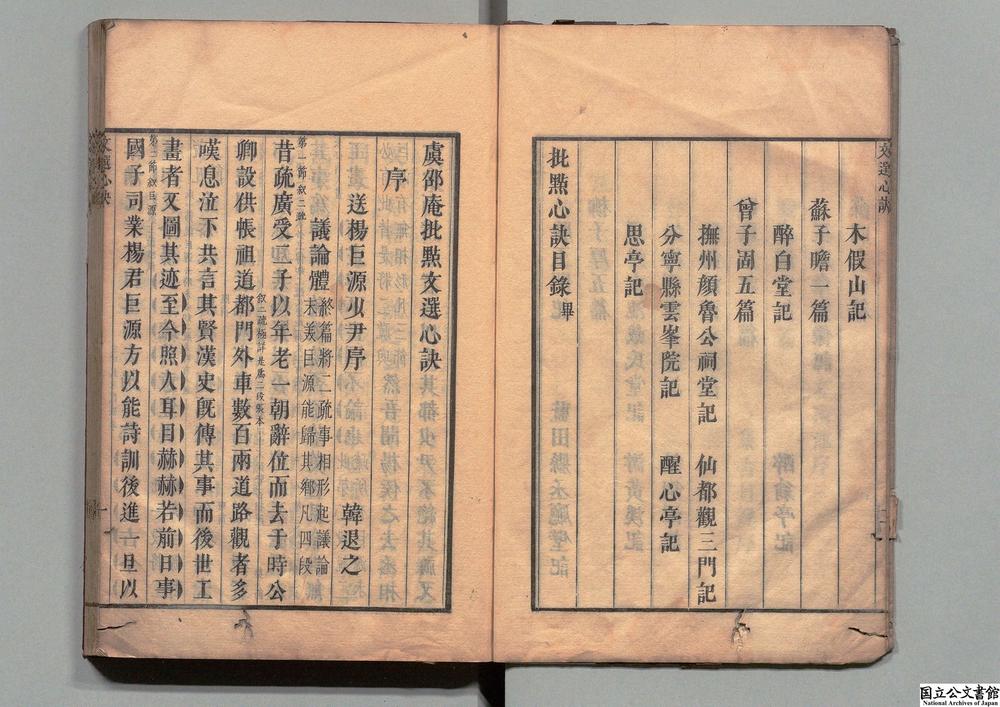 文選心訣
木假山記
蘇子瞻一篇
醉白堂記
曾子固五篇
撫州顏魯公祠堂記 仙都觀三門記
分寧縣雲峯院記 醒心亭記
思亭記
批點心訣目錄畢
虞邵庵批點文選心訣
序
送楊巨源少尹序 韓退之
議論體 終篇將二疏事相形起議論
末羙巨源能歸其鄉凡四段
第一節叙二疏
昔疏廣受二子以年老一朝辭位而去于時公
卿設供帳祖道都門外車數百兩道路觀者多
叙二疏極詳是爲二段張本
嘆息泣下共言其賢漢史旣傳其事而後世工
畫者又圖其迹至今照人耳目赫赫若前日事
第二節叙巨源
國子司業楊君巨源方以能詩訓後進一旦以
文選心訣
国立公文書館
National Archives of Japan